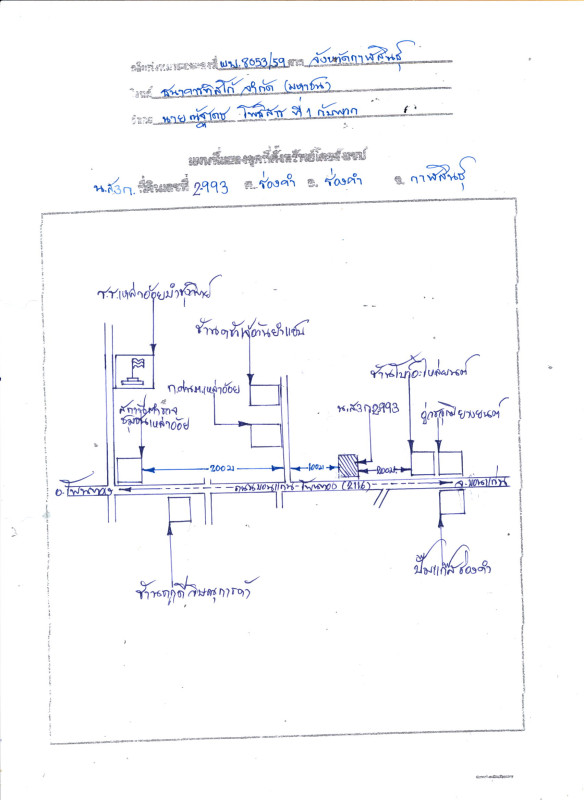 คดีแดงหมายเลขที่ ผบ.8053/59 ศาล จังหวัดกาฬสินธุ์
โจทก์ ธนาคารทิสโก้ จำกัด (มหาชน)
จำเลย นาย โพธิสาร ที่ 1 กับพวก
แผนที่แสดงจุดที่ตั้งทรัพย์โดยสังเขป
น.ส.3ก. ที่ดินเลขที่ 2993 ต. ร่องคำ อ. ร่องคำ จ. กาฬสินธุ์
ร.ร.เหล่าอ้อย
ร้าน
ร้าน อะไหล่ยนต์
ก.ส.น.เหล่าอ้อย
น.ส.3ก.2993
สถานีตำรวจ
ชุมชนเหล่าอ้อย
200 ม
100ม
200ม.
อ.โพนทอง
ถนนขอนแก่น-โพนทอง (2116)
จ.ขอนแก่น
ปั๊มแก๊สร่องคำ
ร้าน การค้า